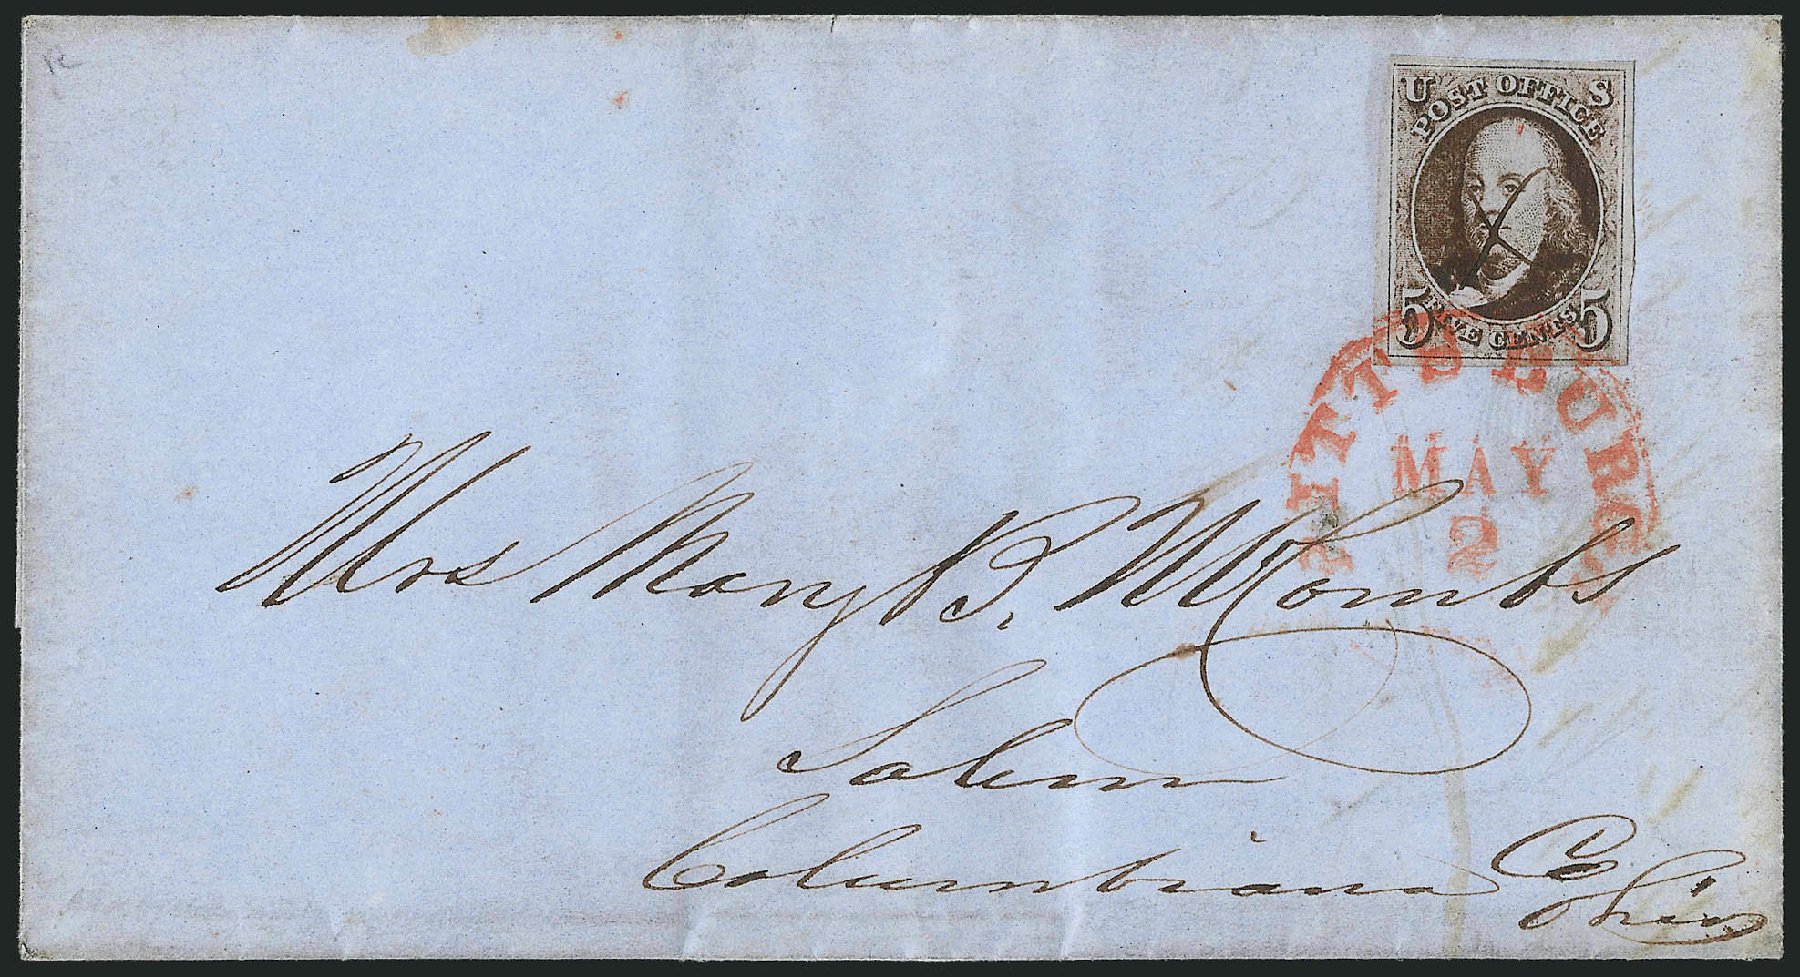 U S
POST OFFICE
5 FIVE CENTS 5
PITTSBURGH
MAY
2
Mrs Mary P. McCombs
Salem
Columbiana Co
Ohio